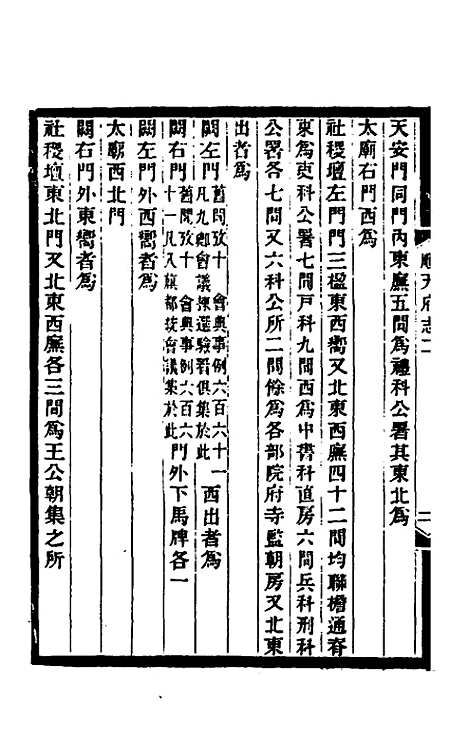 順天府志二
二
天安門同門內東廡五間爲禮科公署其東北爲
太廟右門西爲
社稷壇左門門三楹東西嚮又北東西廡四十二間均聯檐通脊
東爲吏科公署七間戸科九間西爲中書科直房六間兵科刑科
公署各七間又六科公所二間餘爲各部院府寺監朝房又北東
出者爲
闕左門舊聞攷十 會典事例六百六十一凡九卿會議揀選驗看俱集於此西出者爲
闕右門舊聞攷十 會典事例六百六十一凡入旗都統會議集於此門外下馬牌各一
闕左門外西嚮者爲
太廟西北門
闕右門外東嚮者爲
社稷壇東北門又北東西廡各三間爲王公朝集之所